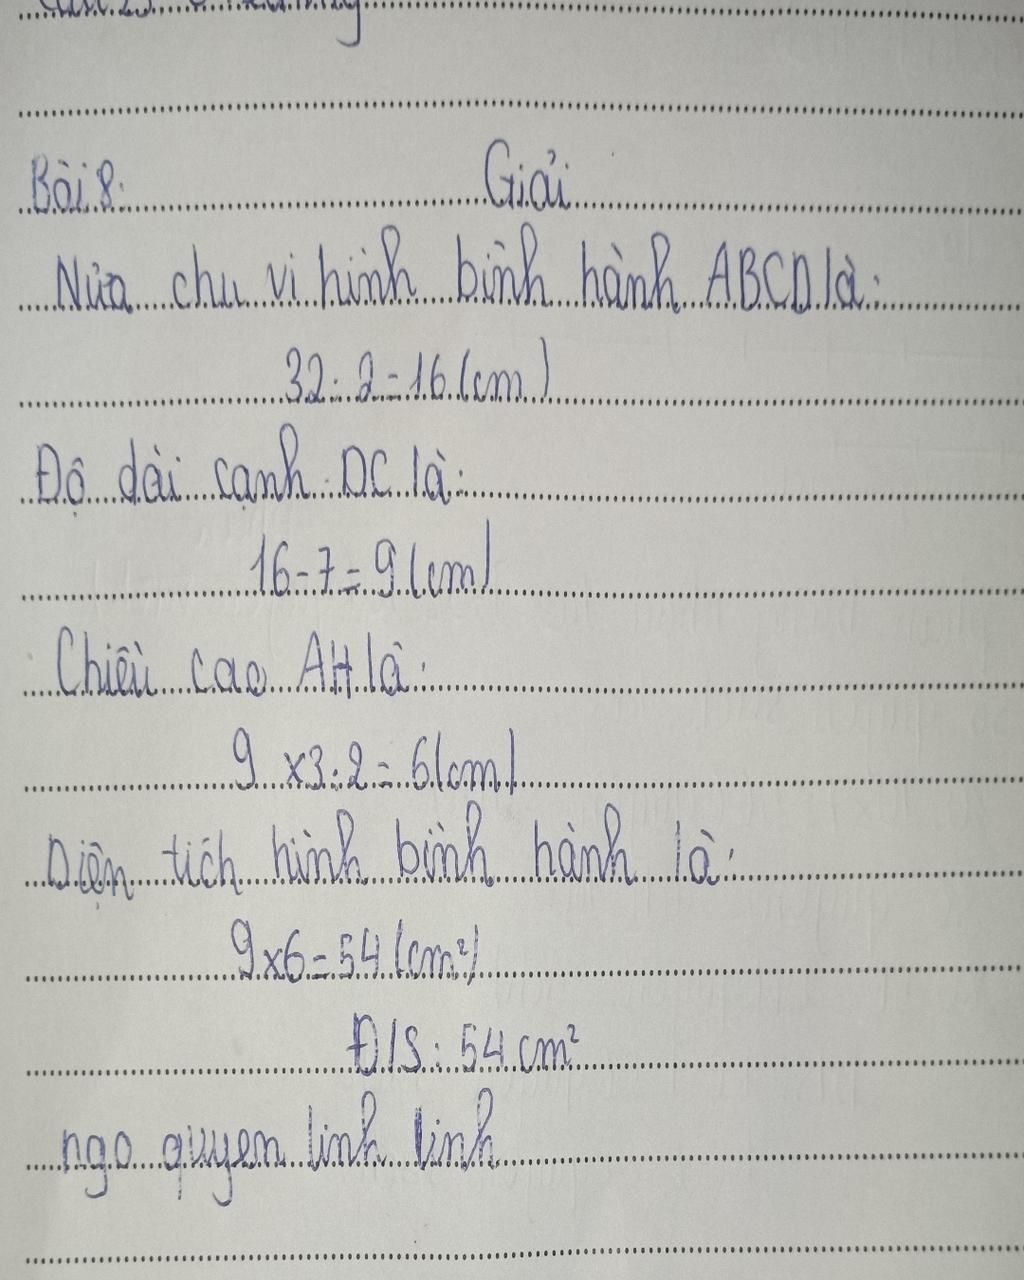 Bài 8: Giải
Nửa chu vi hình bình hành ABCD là:
32 : 2 = 16 (cm)
Độ dài cạnh DC là:
16 - 7 = 9 (cm)
Chiều cao AH là:
9 x 3 : 2 = 6 (cm)
Diện tích hình bình hành là:
9 x 6 = 54 (cm²)
Đ/S: 54 cm²
ngo quyen linh linh